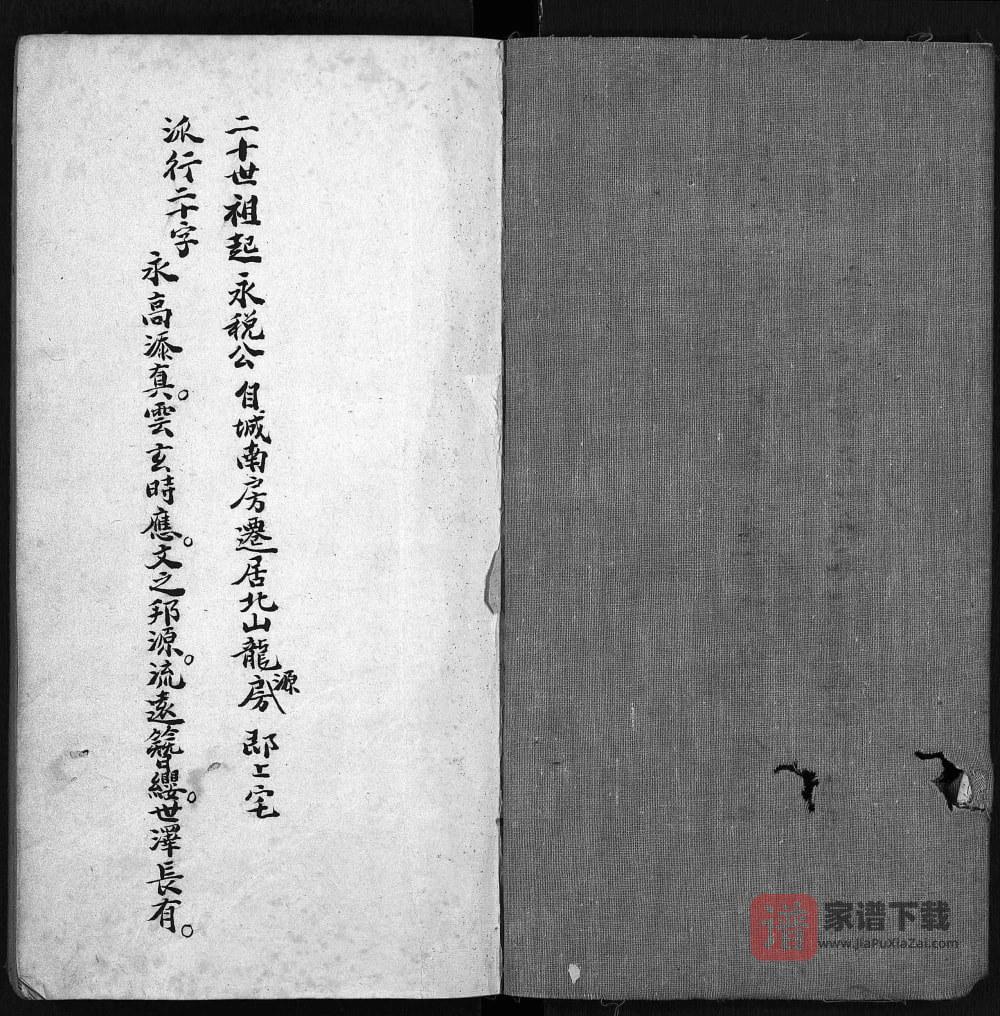 二十世祖起永税公自城南房遷居北山龍源房郎上宅
派行二十字
永高添真。雲玄時應。文之邦源。流遠簪纓。世澤長有。
譜
家谱下载
www.JiaPuXiaZai.com